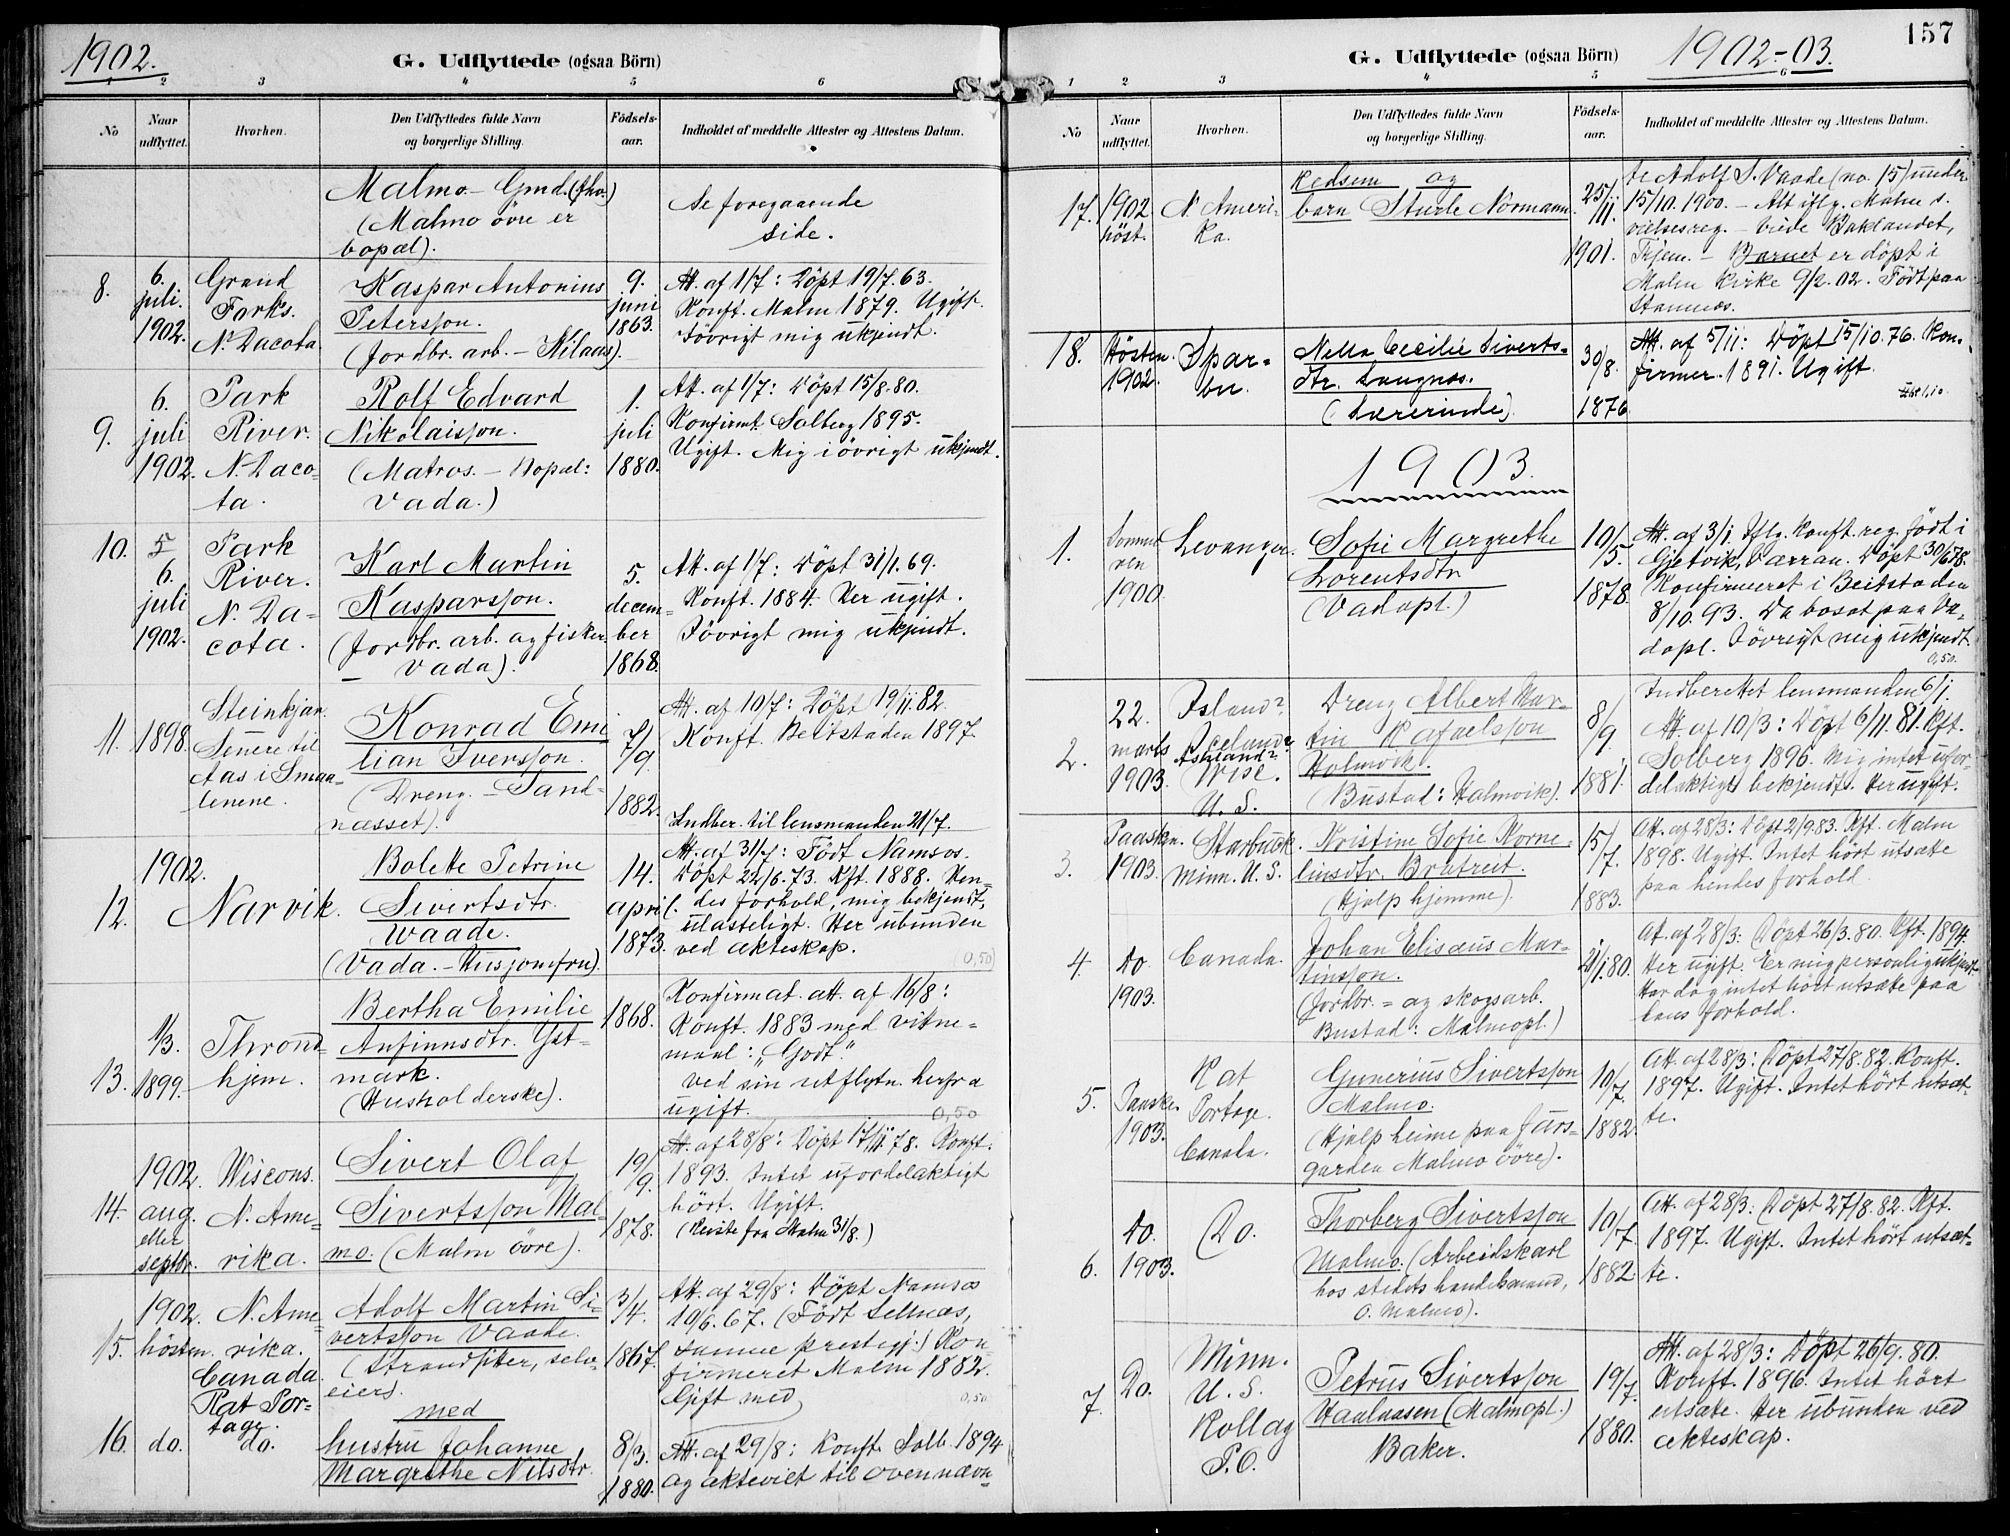 1902.
G. Udflyttede (ogsaa Börn)
1 2 3 4 5 6
No
Naar udflyttet.
Hvorhen.
Den Udflyttedes fulde Navn
og borgerlige Stilling.
Födsels-
aar.
Indholdet af meddelte Attester og Attestens Datum.
Malmo - Gmd. (fhv.)
(Malmo övre er
bopæl).
Se foregaaende
side.
8.
6.
juli.
1902.
Grand
Forks.
N. Dacota.
Kaspar Antonius
Petersson.
(Jordbr. arb. - Kilaas).
9.
juni
1863.
Att. af 1/7: Döpt 19/7. 63.
Konft. Malm 1879. Ugift.
Iövrigt mig ukjendt.
9.
6.
juli
1902.
Park
River.
N. Daco-
ta.
Rolf Edvard
Nikolaisson.
(Matros. - Bopæl:
Vada.)
1.
juli
1880.
Att. af 1/7: Döpt 15/8. 80.
Konfirmt. Solberg 1895.
Ugift. Mig iövrigt ukjendt.
10.
5
6.
juli
1902.
Park
River.
N. Da-
cota.
Karl Martin
Kasparsson.
(Jordbr. arb. og fisker.
- Vada).
5.
decem-
ber
1868.
Att. af 1/7: Döpt 31/1. 69.
Konft. 1884. Her ugift.
Iövrigt mig ukjendt.
11.
1898.
Steinkjær.
Senere til
Aas i Smaa-
lenene.
Konrad Emi
lian Iversson.
(Dreng. - Sand-
næsset).
7/9
1882.
Att. af 10/7: Döpt 19/11. 82.
Konft. Beitstaden 1897.
Indber. til lensmanden 21/7.
12.
1902.
Narvik.
Bolette Petrine
Sivertsdtr.
Waade.
(Vada. - Husjomfru).
14.
april.
1873.
Att. af 31/7: Född Namsos.
Döpt 22/6. 73. Kft. 1888. Hen-
des forhold, mig bekjendt,
ulasteligt. Her ubunden
ved ækteskap.
(0,50)
13.
1/3.
1899.
Thrond-
hjem.
Bertha Emilie
Anfinnsdtr. Yst-
mark.
(Husholderske).
1868.
Konfirmat. att. af 16/8:
Konft. 1883 med vitne-
maal: „Godt."
Ved sin utflytn. herfra
ugift.
0,50
14.
1902.
aug.
eller
septbr.
Wiscons.
N. Ame-
rika.
Sivert Olaf
Sivertsson Mal-
mo. (Malm övre).
19/9.
1878.
Att. af 28/8: Döpt 17/11 78. Konft.
1893. Intet ufordelaktigt
hört. Ugift.
(Reiste fra Malm 31/8.)
15.
1902.
hösten.
N. Ame
rika.
Canada.
Rat Por-
tage.
Adolf Martin Si-
vertsson Vaade.
(Strandsitter, selv-
eier).
med
3/4.
1867.
Att. af 29/8: Döpt Namsos
10/6. 67. (Född Sellnæs,
samme prestegj.) Kon-
firmeret Malm 1882.
Gift med
0,50
16.
do.
do.
hustru Johanne
Margrethe Nilsdtr.
8/3.
1880.
Att. af 29/8: Konft. Solb. 1894
og ækteviet til ovennævn-
157
G. Udflyttede (ogsaa Börn)
1902-03.
1 2 3 4 5 6
No
Naar
udflyttet.
Hvorhen.
Den Udflyttedes fulde Navn
og borgerlige Stilling.
Födsels-
aar.
Indholdet af meddelte Attester og Attestens Datum.
17.
1902.
höst.
N. Ameri-
ka.
og
barn Sturle Normann.
25/11.
1901.
te Adolf S. Vaade (no. 15) under
15/10. 1900. - Alt iflg. Malm s.
vielsesreg. - viede Baklandet,
Trjem. - Barnet er döpt i
Malm kirke 9/2. 02. Född paa
Stamnæs.
18.
Hösten.
1902.
Spar-
bu.
Nella Cecilie Siverts-
dtr. Langnæs.
(Lærerinde).
30/8.
1876
Att. af 5/11: Döpt 15/10. 76. Kon-
firmer. 1891. Ugift.
1903.
1.
Somme
ren
1900.
Levanger.
Sofie Margrethe
Lorentsdtr
(Vadapl.)
10/5.
1878.
Att. af 3/1. Iflg. konft. reg. född i
Gjetvik, Varran. Döpt 30/6 78.
Konfirmeret i Beitstaden
8/10. 93. Da bosat paa Va-
dapl. Iövrigt mig ukjendt.
0,50.
2.
22.
marts
1903.
Island?
Iceland?
Ashland?
Wisc.
U. S.
Dreng Albert Mar-
tin Rafaelsson
Holmvik.
(Bustad: Holmvik).
8/9.
1881.
Indberettet lensmanden 6/1.
Att. af 10/3: Döpt 6/11. 81. Kft.
Solberg 1896. Mig intet ufor-
delaktigt bekjendt. Her ugift.
3.
Paasken.
1903.
Starbuck.
Minn. U. S.
Kristine Sofie Korne-
liusdtr. Bratreit.
(Hjælp hjemme).
15/7.
1883.
Att. af 28/3: Döpt 2/9. 83. Kft. Malm
1898. Ugift. Intet hört utsætte
paa hendes forhold.
4.
do
1903.
Canada.
Johan Elisæus Mar-
tinsson.
(Jordbr. = og skogsarb.
Bustad: Malmopl.)
21/1. 80.
Att. af 28/3: Döpt 26/3. 80. Kft. 1894.
Her ugift. Er mig personlig ukjendt.
Har dog intet hört utsætte paa
hans forhold.
5.
Paaske.
1903.
Rat
Portage.
Canada.
Gunerius Sivertsson
Malmo.
(Hjælp heime paa fars-
garden Malmo övre).
10/7.
1882.
Att. af 28/3: Döpt 27/8. 82. Konft.
1897. Ugift. Intet hört utsæt-
te.
6.
do.
1903.
Do.
Thorberg Sivertsson
Malmo. (Arbeidskarl
hos stedets handelsmand,
O. Malmo).
10/7.
1882.
Att. af 28/3: Döpt 27/8. 82. Kft.
1897. Ugift. Intet hört utsæt-
te.
7.
Do.
Minn.
U. S.
Rollag
P.O.
Petrus Sivertsson
Haalaasen (Malmopl.)
Baker.
19/7.
1880.
Att. af 28/3: Döpt 26/9. 80.
Konft. 1896. Intet hört
utsætte. Her ubunden ved
ækteskap.